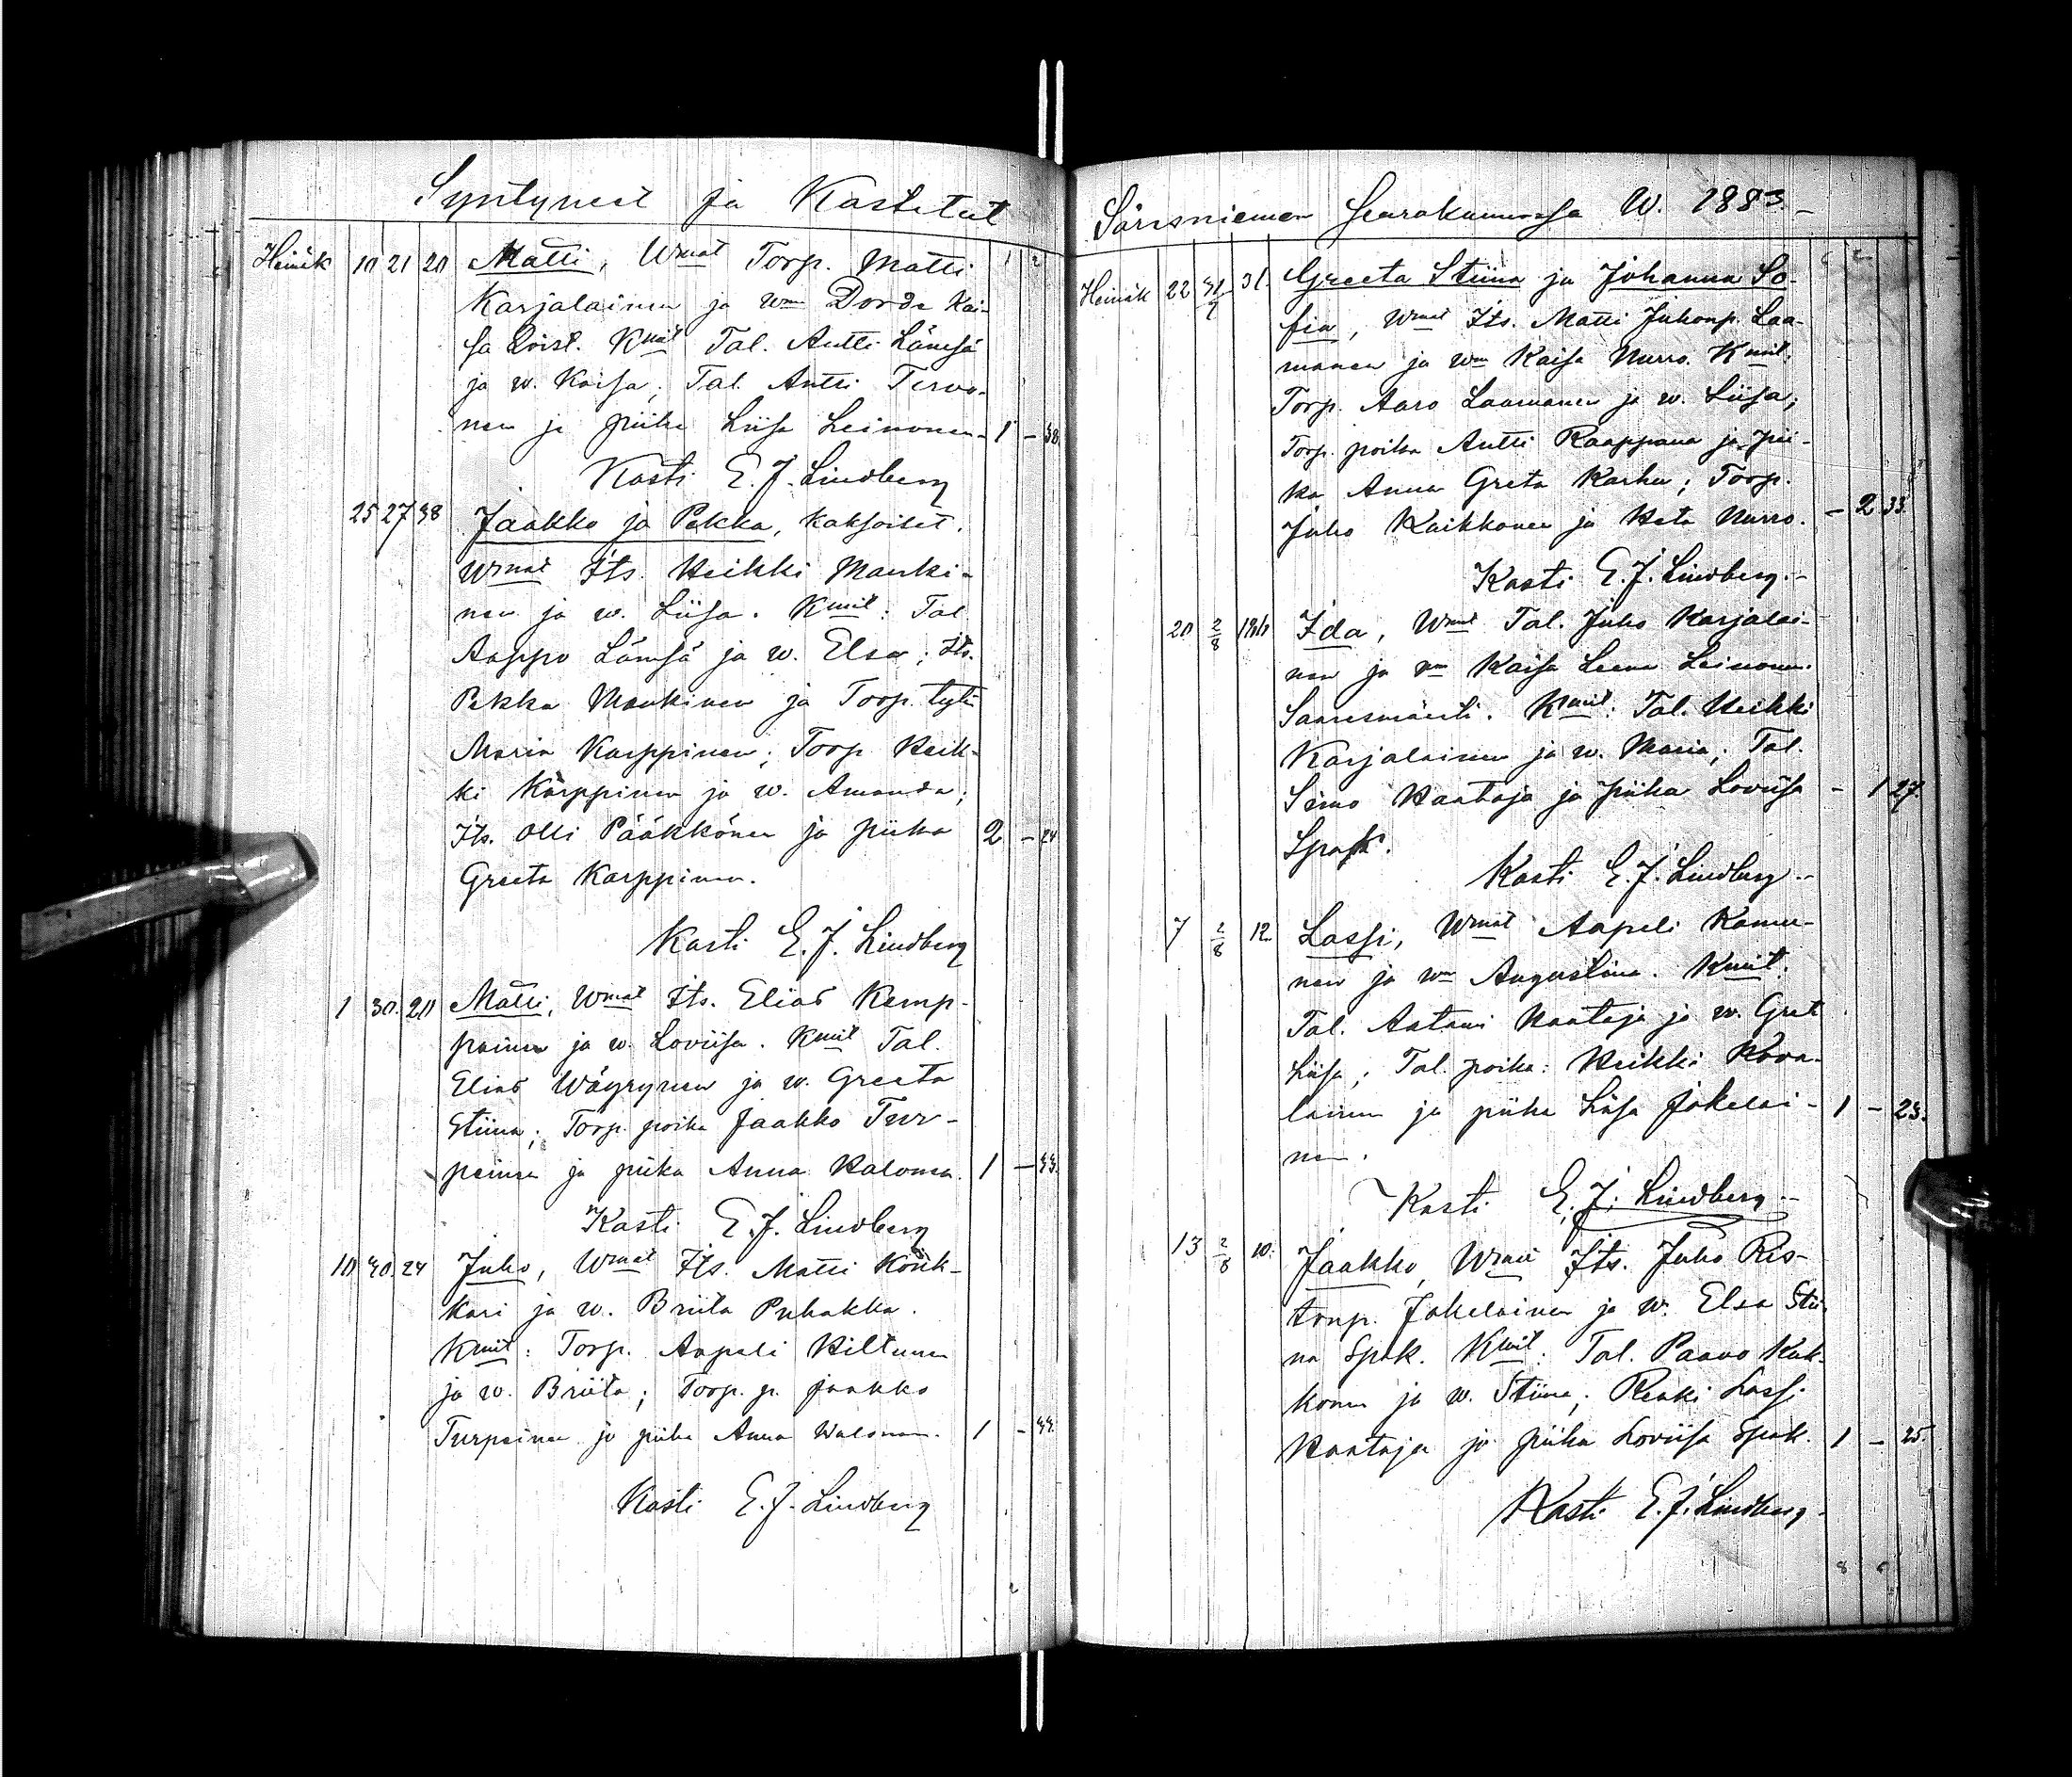 Syntyneet ja Kastetut
Heinäk 10 21 20 Matti, Wmat Torp. Matti
Karjalainen ja wm Dorde Kai-
sa Kmit Tal. Antti Lämsä
ja w. Kaisa; Tal. Antti Tervo-
nen ja piika Liisa Leinonen - 1 - 38.
Kasti E. J. Lindberg
25 27 38 Jaakko ja Pekka, kaksoiset.
Wmat Its. Heikki Manki-
nen ja w. Liisa. Kmit: Tal
Aappo Lämsä ja w. Elsa; Its.
Pekka Mankinen ja Torp. tytö
Maria Karppinen; Torp Heik-
ki Karppinen ja w. Amanda;
Its. Olli Pääkkönen ja piika 2 - 24
Greeta Karppinen.
Kasti E. J. Lindberg
1 30. 20 Matti, Wmat Its. Elias Kemp-
painen ja w. Loviisa. Kmit Tal.
Elias Wäyrynen ja w. Greeta
Stiina; Torp. poika Jaakko Tur-
peinen ja piika Anna Halonen. 1 -
Kasti E. J. Lindberg
10 30. 24 Juho, Wmat Its. Matti Könk-
käri ja w. Briita Puhakka.
Kmit: Torp. Aapeli Hiltunen
ja w. Briita; Torp. p. Jaakko
Turpeinen ja piika Anna 1 -
Kasti E. J. Lindberg
Säresniemen Seurakunnassa W. 1883.
Heinäk 22 31. Greeta Stiina ja Johanna So-
fia, Wmat Its. Matti Juhonp. Laa-
manen ja wm Kaisa Nurro. Kmit.
Torp. Aaro Laamanen ja w. Liisa;
Torp. poika Antti Raappana ja pii-
ka Anna Greta Karhu; Torp.
Juho Kaikkonen ja Heta Nurro. - 2 33.
Kasti E. J. Lindberg.
20 2/8 Ida, Wmat Tal. Juho Karjalai-
nen ja wm Kaisa Leena Leinonen.
Kmit: Tal. Heikki
Karjalainen ja w. Maria; Tal.
Simo Haataja ja piika Loviisa - 1 27.
Kasti E. J. Lindberg.
7 2/8 12 Lassi, Wmat Aapeli Komu-
nen ja wm Augustina. Kmit.
Tal. Antani Haataja ja w. Gret
Liisa; Tal. poika: Heikki Kova-
lainen ja piika Liisa Jokelai- 1 - 23.
nen.
Kasti E. J. Lindberg
13 2/8 10. Jaakko, Wmat Its. Juho Ris-
tonp. Jokelainen ja w. Elsa Stii-
na Spak. Kmit: Tal. Paavo Kuk-
konen ja w. Stiina; Renki Lassi
Haataja ja piika Loviisa Spak. 1 - 25.
Kasti E. J. Lindberg.